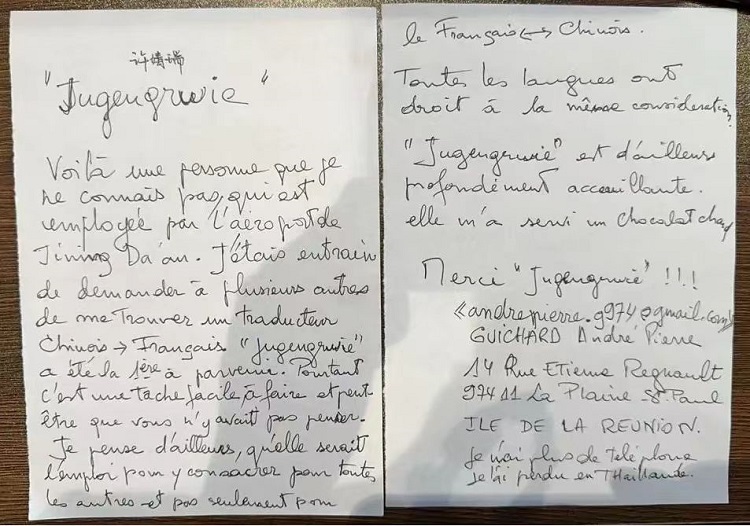 许婧瑞
"Jugengruie"
Voilà une personne que je
ne connais pas, qui est
employée par l'aéroport de
Jining Da'an. J'étais entrain
de demander à plusieurs autres
de me Trouver un traducteur
Chinois → Français "Jugengruié"
a été la 1ère à parvenir. Pourtant
c'est une tache facile à faire et peut
être que vous n'y avait pas penser.
Je pense d'ailleurs, qu'elle serait
l'emploi pour y consacrer pour toutes
les autres et pas seulement pour
le Français ↔ Chinois.
Toutes les langues ont
droit à la même consideration.
"Jugengruié" est d'ailleurs
profondément accueillante.
elle m'a servi un chocolat chaud
Merci "Jugengruié" !!!
andrepierre.g974@gmail.com
GUICHARD André Pierre
14 Rue Etienne Regnault
97411 La Plaine St Paul
ILE DE LA REUNION.
Je n'ai plus de téléphone
je l'ai perdu en THaïllande.